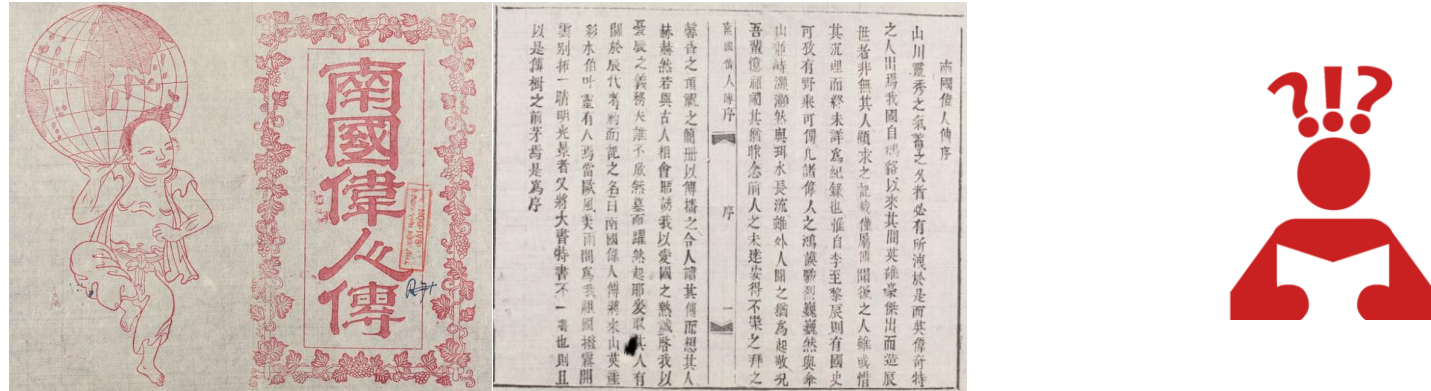 南國偉人傳
南國偉人傳序
山川靈秀之气蓄之久者必有所洩於是而英偉奇特
之人出焉我國自鴻貉以來其間英雄豪傑出而造辰
世者非無其人顧求之記載僅屬傳聞後之人雖或惜
其沉埋而終未詳爲紀錄也惟自李至黎辰則有國史
可攷有野乘可傳凡諸偉人之鴻謨駿烈巍巍然與傘
山並峙灝灝然與珥水長流雖外人聞之猶爲起敬況
吾輩憶祖國其猶念前人之未遠安得不崇之拜之
南國偉人傳序
序
一
馨香之頂祝之簡冊以傳播之令人讀其傳而想其人
赫赫然若與古人相會晤誘我以愛國之熱誠啓我以
憂辰之義務夫誰不欣然慕而躍然起耶爰取其人有
關於辰代者約而記之名曰南國偉人傳將來山英產
彩水伯叶靈有人焉當歐風美雨間爲我祖國撥霧開
雲別拓一晴明光景者又將大書特書不一書也則且
以是傳樹之前茅焉是爲序
?!?